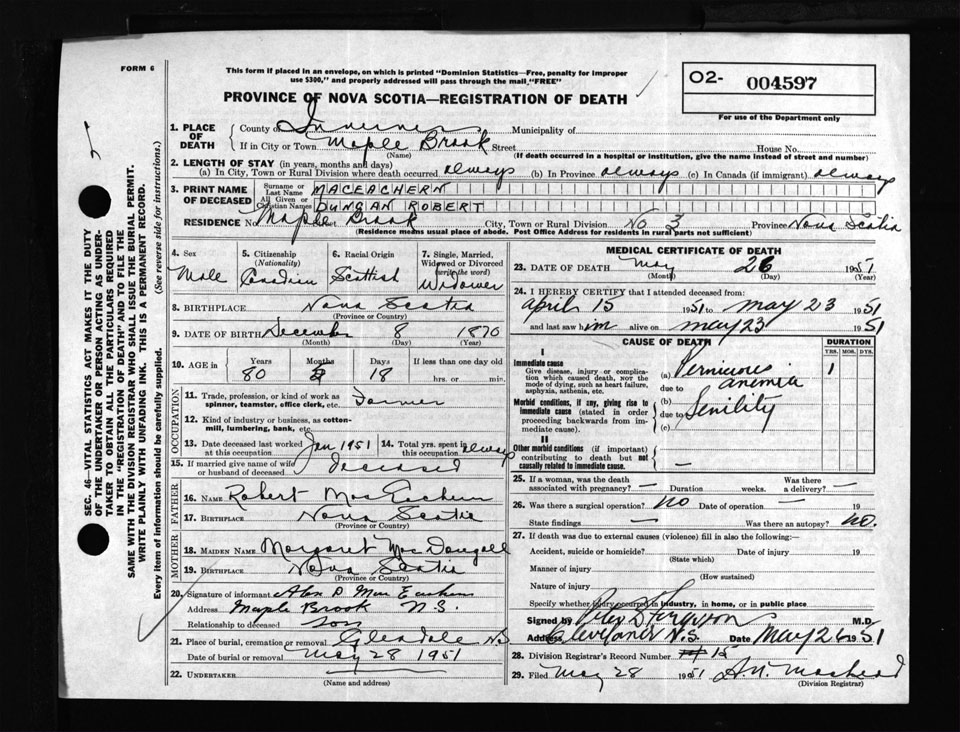 FORM 6
This form if placed in an envelope, on which is printed "Dominion Statistics—Free, penalty for improper
use $300," and properly addressed will pass through the mail "FREE"
PROVINCE OF NOVA SCOTIA—REGISTRATION OF DEATH
O2- 004597
For use of the Department only
SEC. 46—VITAL STATISTICS ACT MAKES IT THE DUTY
OF THE UNDERTAKER OR PERSON ACTING AS UNDER-
TAKER TO OBTAIN ALL THE PARTICULARS REQUIRED
IN THE "REGISTRATION OF DEATH" AND TO FILE THE
SAME WITH THE DIVISION REGISTRAR WHO SHALL ISSUE THE BURIAL PERMIT.
WRITE PLAINLY WITH UNFADING INK. THIS IS A PERMANENT RECORD.
Every item of information should be carefully supplied. (See reverse side for instructions.)
1. PLACE OF DEATH
County of Inverness Municipality of
If in City or Town Maple Brook Street House No.
(Name) (If death occurred in a hospital or institution, give the name instead of street and number)
2. LENGTH OF STAY (in years, months and days)
(a) In City, Town or Rural Division where death occurred always (b) In Province always (c) In Canada (if immigrant) always
3. PRINT NAME OF DECEASED
Surname or Last Name MACEACHERN
All Given or Christian Names DUNCAN ROBERT
RESIDENCE No. Maple Brook Street City, Town or Rural Division No 3 Province Nova Scotia
(Residence means usual place of abode. Post Office Address for residents in rural parts not sufficient)
4. Sex Male
5. Citizenship (Nationality) Canadian
6. Racial Origin Scottish
7. Single, Married, Widowed or Divorced (write the word) Widower
8. BIRTHPLACE Nova Scotia
(Province or Country)
9. DATE OF BIRTH December 8 1870
(Month) (Day) (Year)
10. AGE in Years 80 Months Days 18 If less than one day old
hrs. or min.
OCCUPATION
11. Trade, profession, or kind of work as spinner, teamster, office clerk, etc. Farmer
12. Kind of industry or business, as cotton-mill, lumbering, bank, etc.
13. Date deceased last worked at this occupation Jan 1951
14. Total yrs. spent in this occupation always
15. If married give name of wife or husband of deceased deceased
FATHER
16. NAME Robert MacEachern
17. BIRTHPLACE Nova Scotia
(Province or Country)
MOTHER
18. MAIDEN NAME Margaret MacDougall
19. BIRTHPLACE Nova Scotia
(Province or Country)
20. Signature of informant Alex P. MacEachern
Address Maple Brook N.S.
Relationship to deceased Son
21. Place of burial, cremation or removal Glendale N.S
Date of burial or removal May 28 1951
22. UNDERTAKER —
(Name and address)
MEDICAL CERTIFICATE OF DEATH
23. DATE OF DEATH May 26 1951
(Month) (Day)
24. I HEREBY CERTIFY that I attended deceased from:
April 15 1951 to May 23 1951
and last saw him alive on May 23 1951
CAUSE OF DEATH DURATION
YRS. MOS. DYS.
I
Immediate cause
Give disease, injury or complica-
tion which caused death, not the
mode of dying, such as heart failure,
asphyxia, asthenia, etc.
(a) Pernicious anemia 1
due to
Morbid conditions, if any, giving rise to
immediate cause (stated in order
proceeding backwards from im-
mediate cause).
(b) Senility
due to
(c)
II
Other morbid conditions (if important)
contributing to death but not
causally related to immediate cause. —
25. If a woman, was the death associated with pregnancy? — Duration weeks. Was there a delivery? —
26. Was there a surgical operation? no Date of operation — 19
State findings — Was there an autopsy? no.
27. If death was due to external causes (violence) fill in also the following:
Accident, suicide or homicide? Date of injury 19
(State which)
Manner of injury
(How sustained)
Nature of injury
Specify whether injury occurred in industry, in home, or in public place
Signed by Peter S Ferguson M.D.
Address Cleveland N.S. Date May 26 1951
28. Division Registrar's Record Number 15
29. Filed May 28 1951
(Division Registrar)